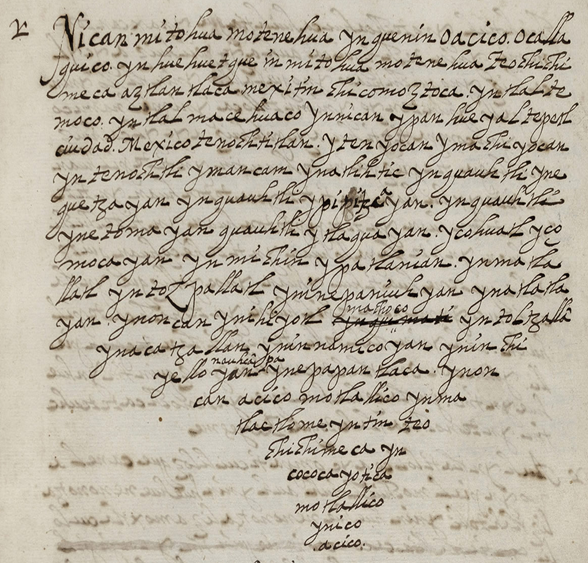 Nican mitohua motenehua ynquenin Oacico. Ocalla
quico. yn huehuetque in mitohua motenehua teochichi
meca aztlan tlaca mexitin chicomoztoca. yntlalte
moco. yntlalmacehuaco ynnican ypan hueyaltepetl
ciudad. Mexico tenochtitlan. ytenyocan ymachiyocan
yn tenochtli ymancan ynatlihtic ynquauhtli yne
quetzayan ynquauhtli ypipitzcayan. ynquauhtli
ynetomayan quauhtli ytlaquayan. ycohuatl yço
mocayan yn michin ypatlanian. ynmatla
llatl yntozpallatl yninepaniuhyan ynatlatla
yan. ynoncan ynihiyotl machoco yntoltzallā
ynacatzallan yninnamicoyan ynin
yelloyan nauhcāpa ynepapan tlaca. ynon
can acico motlallico ynma
tlactlome yntin teo
chichimeca yn
cococayotica
motlallico
ynico
acico.